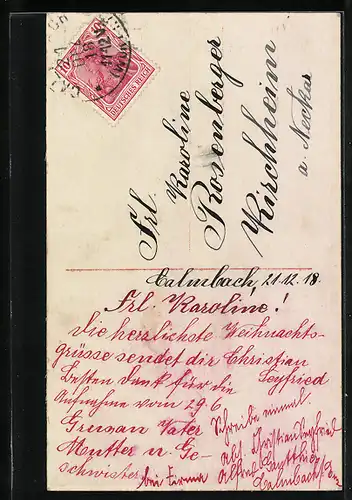 DEUTSCHES REICH
10
Frl.
Karoline
Rosenberger
Kirchheim
a. Neckar
Calmbach, 21.12.18.
Frl. Karoline!
Die herzlichste Weihnachts-
grüsse sendet dir Christian
Seyfried
Besten Dank für die
Aufnahme vom 29.6
Grusan Vater
Mutter u. Ge-
schwister
Schreibe einmal.
abs. Christian Seyfried
bei Firma Alfred
Calmbach